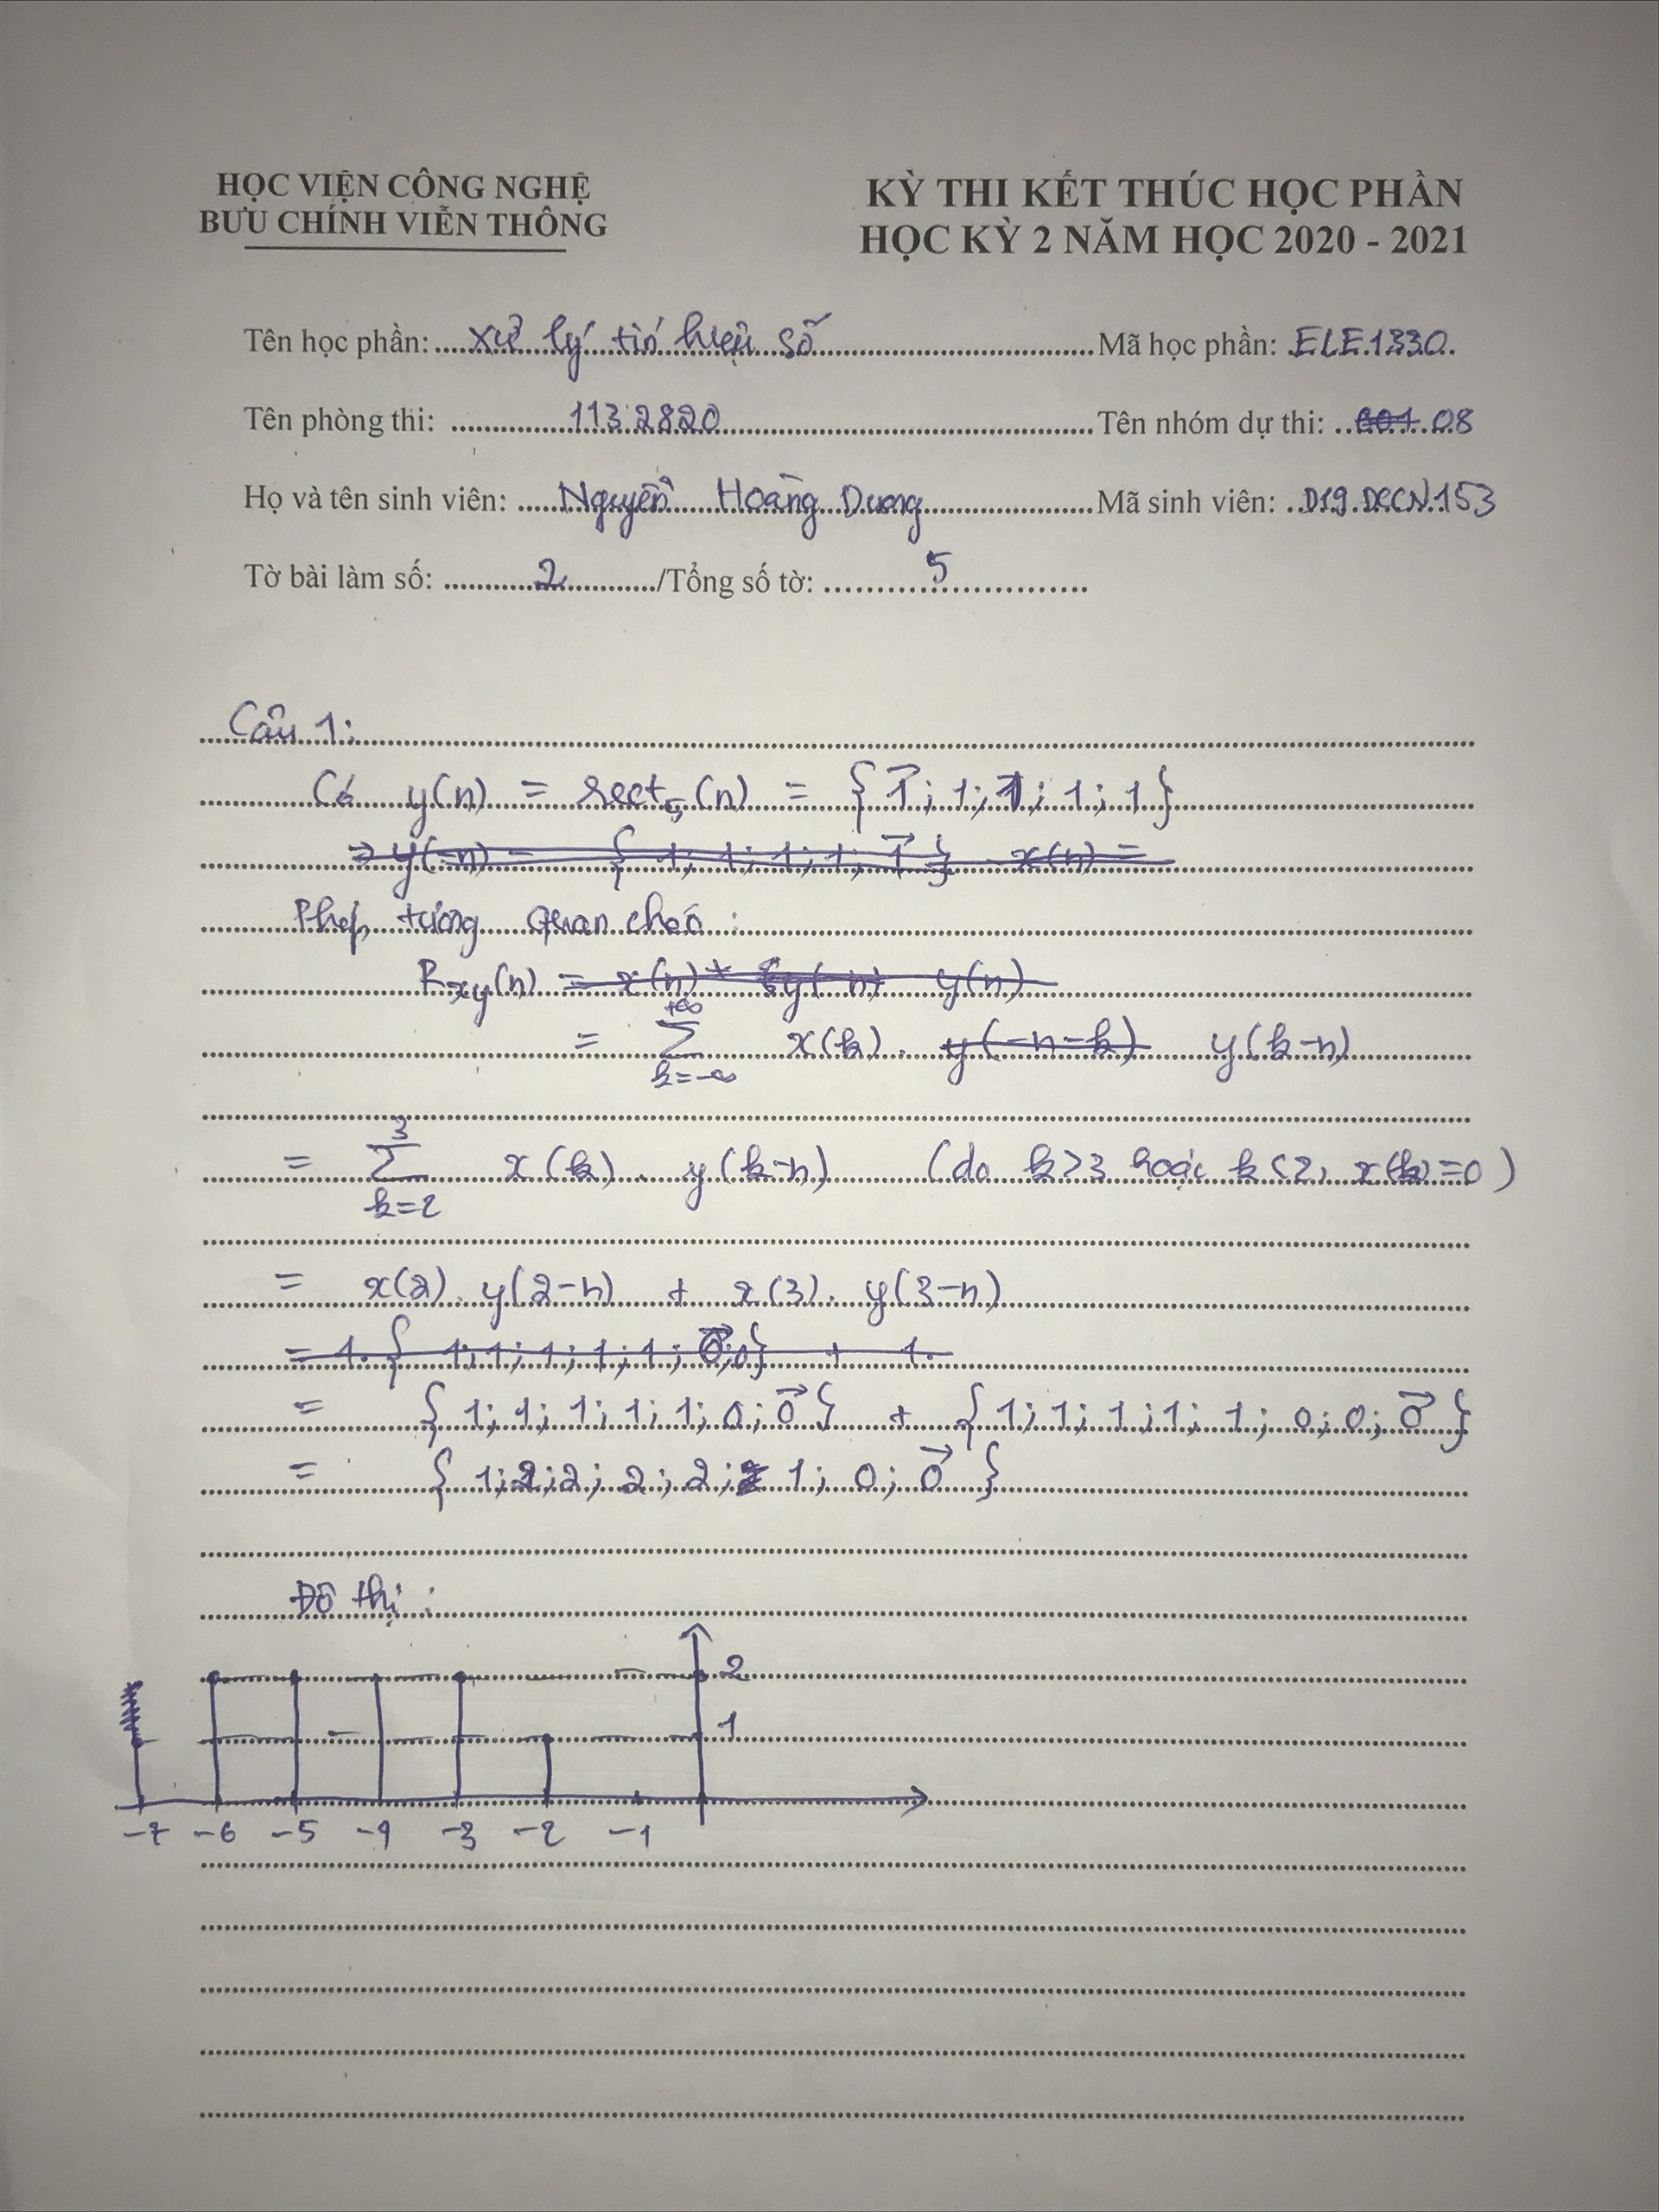 HỌC VIỆN CÔNG NGHỆ
BƯU CHÍNH VIỄN THÔNG
KỲ THI KẾT THÚC HỌC PHẦN
HỌC KỲ 2 NĂM HỌC 2020 - 2021
Tên học phần: Xử lý tín hiệu số Mã học phần: ELE1330
Tên phòng thi: 1132820 Tên nhóm dự thi: 08
Họ và tên sinh viên: Nguyễn Hoàng Dương Mã sinh viên: D19DCCN153
Tờ bài làm số: 2 /Tổng số tờ: 5
Câu 1:
Có y(n) = rect₅(n) = { 1⃗; 1; 1; 1; 1 }
⇒ y(-n) = { 1; 1; 1; 1; 1⃗ } x(n) =
Phép tương quan chéo:
Rxy(n) = x(n) * y(-n) y(n)
= Σ (k=-∞ → +∞) x(k). y(-n-k) y(k-n)
= Σ (k=2 → 3) x(k). y(k-n) (do k>3 hoặc k<2, x(k)=0)
= x(2). y(2-n) + x(3). y(3-n)
= 1. { 1; 1; 1; 1; 1; 0⃗; 0 } + 1.
= { 1; 1; 1; 1; 1; 0; 0⃗ } + { 1; 1; 1; 1; 1; 0; 0; 0⃗ }
= { 1; 2; 2; 2; 2; 1; 0; 0⃗ }
Đồ thị:
2
1
-7 -6 -5 -4 -3 -2 -1